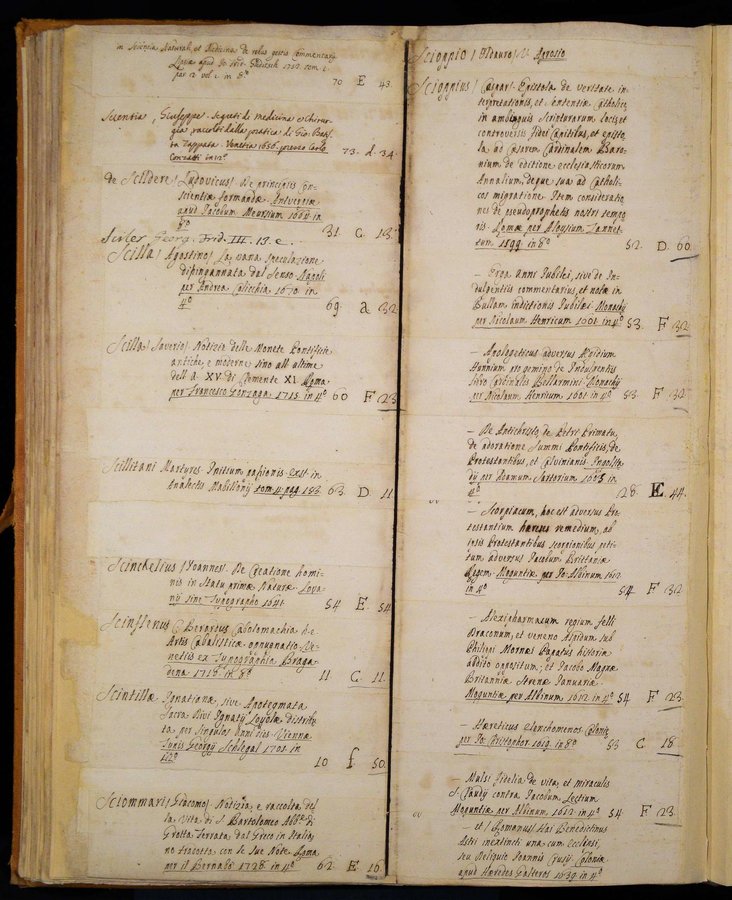 in Scientia Naturali, et Medicina de rebus gestis Commentarij
Lipsiæ apud Jo. Frid. Gleditsch 1752. tom. 1.
par. 2 vol. 1. in 8º 70 E 43.
Scientia, Giuseppe. Segreti di medicina e chirur-
gia raccolti dalla pratica di Gio: Batis-
ta Zappata. Venetia 1656. presso Carlo
Conzatti in 12º 73. d. 34
de Scildere (Ludovicus) De principiis Con-
scientiæ formandæ. Antverpiæ
apud Jacobum Meursium 1664. in
8º 31 C 13.
Scilla (Agostino) La vana speculazione
disingannata dal senso. Napoli
per Andrea Colicchia 1670. in
4º 69 a 32
Scilla (Saverio) Notizie delle Monete Pontificie
antiche, e moderne sino all' ultime
dell' a. XV. di Clemente XI. Roma
per Francesco Gonzaga 1715. in 4º 60 F 23
Scillitani Martyres. Initium passionis. Exst. in
Analectis Mabillonij tom. 4. pag. 153. 63. D 11
Scinckelius (Joannes) De Creatione homi-
nis in Statu primæ Naturæ. Lova-
nij sine Typographo 1641 54 E. 54
C. Berardus Cabalomachia h. e.
Artis Cabalisticæ oppugnatio. Ve-
netiis ex Typographia Braga-
dena in 8º 11 C 11.
Scintillæ Ignatianæ, sive Apotegmata
Sacra Divi Ignatij Loyolæ distribu-
ta per singulos anni dies. Viennæ
Typis Georgij Schlegel 1701 in
12º 10 f 50.
Sciommari (Giacomo) Notizia, e raccolta del
la Vita di S. Bartolomeo Abb.e di
Grotta Ferrata dal Greco in Italia-
no tradotta con le sue Note. Roma
per il Bernabò 1728. in 4º 62. E 16
Scioppio (Oldauro) V. Aprosio
Scioppius (Caspar) Epistola de veritate in-
terpretationis, et sententiæ Catholicæ
in ambiguis Scripturarum locis, et
controversis Fidei Capitibus, et episto-
la ad Cæsarem Cardinalem Baro-
nium de editione ecclesiasticorum
Annalium, deque sua ad Catholi-
cos migratione. Item consideratio-
nes de pseudoprophetis nostri tempo-
ris. Romæ per Aloysium Zannet-
tum 1599 in 8º 52. D. 60
— Pro anni Jubilei, sive de In-
dulgentiis commentarius, et notæ in
Bullam indictionis Jubilæi. Monachij
per Nicolaum Henricum 1601 in 4º 53. F 32
— Apologeticus adversus Ægidium
Hunnium pro gemino de Indulgentiis
libro Cardinalis Bellarmini. Monachij
per Nicolaum Henricum 1601 in 4º 53. F 32
— De Antichristo, de Petri Primatu,
de adoratione summi Pontificis, de
Protestantibus, et Calvinianis. Ingolsta-
dij per Adamum Sartorium 1605. in
4º 128. E. 44.
— Scorpiacum, hoc est adversus Pro-
testantium hæreses remedium, ab
ipsis Protestantibus scorpionibus peti-
tum adversus Jacobum Brittaniæ
Regem. Moguntiæ per Jo: Albinum 1612
in 4º 54 F 32
— Alexipharmacum regium felli
Draconum, et veneno Aspidum sub
Philippi Mornæi Papatus historia
abdito oppositum, et Jacobo Magnæ
Britanniæ strenæ Januariæ
Moguntiæ per Albinum 1612. in 4º 54 F 23
— Hæreticus elenchomenos. Coloniæ
per Jo. Christophor. 1619. in 8º 53 C 18
— Malsi fidelia de vita, et miraculis
contra Jacobum Lectium
Moguntiæ per Albinum 1612 in 4º 54 F 23
— et (Romanus) Hai Benedictinus
Astri inextincti una cum ecclipsi,
seu Reliquit Joannis Crusij. Coloniæ
apud Hæredes Gualteros 1639. in 4º